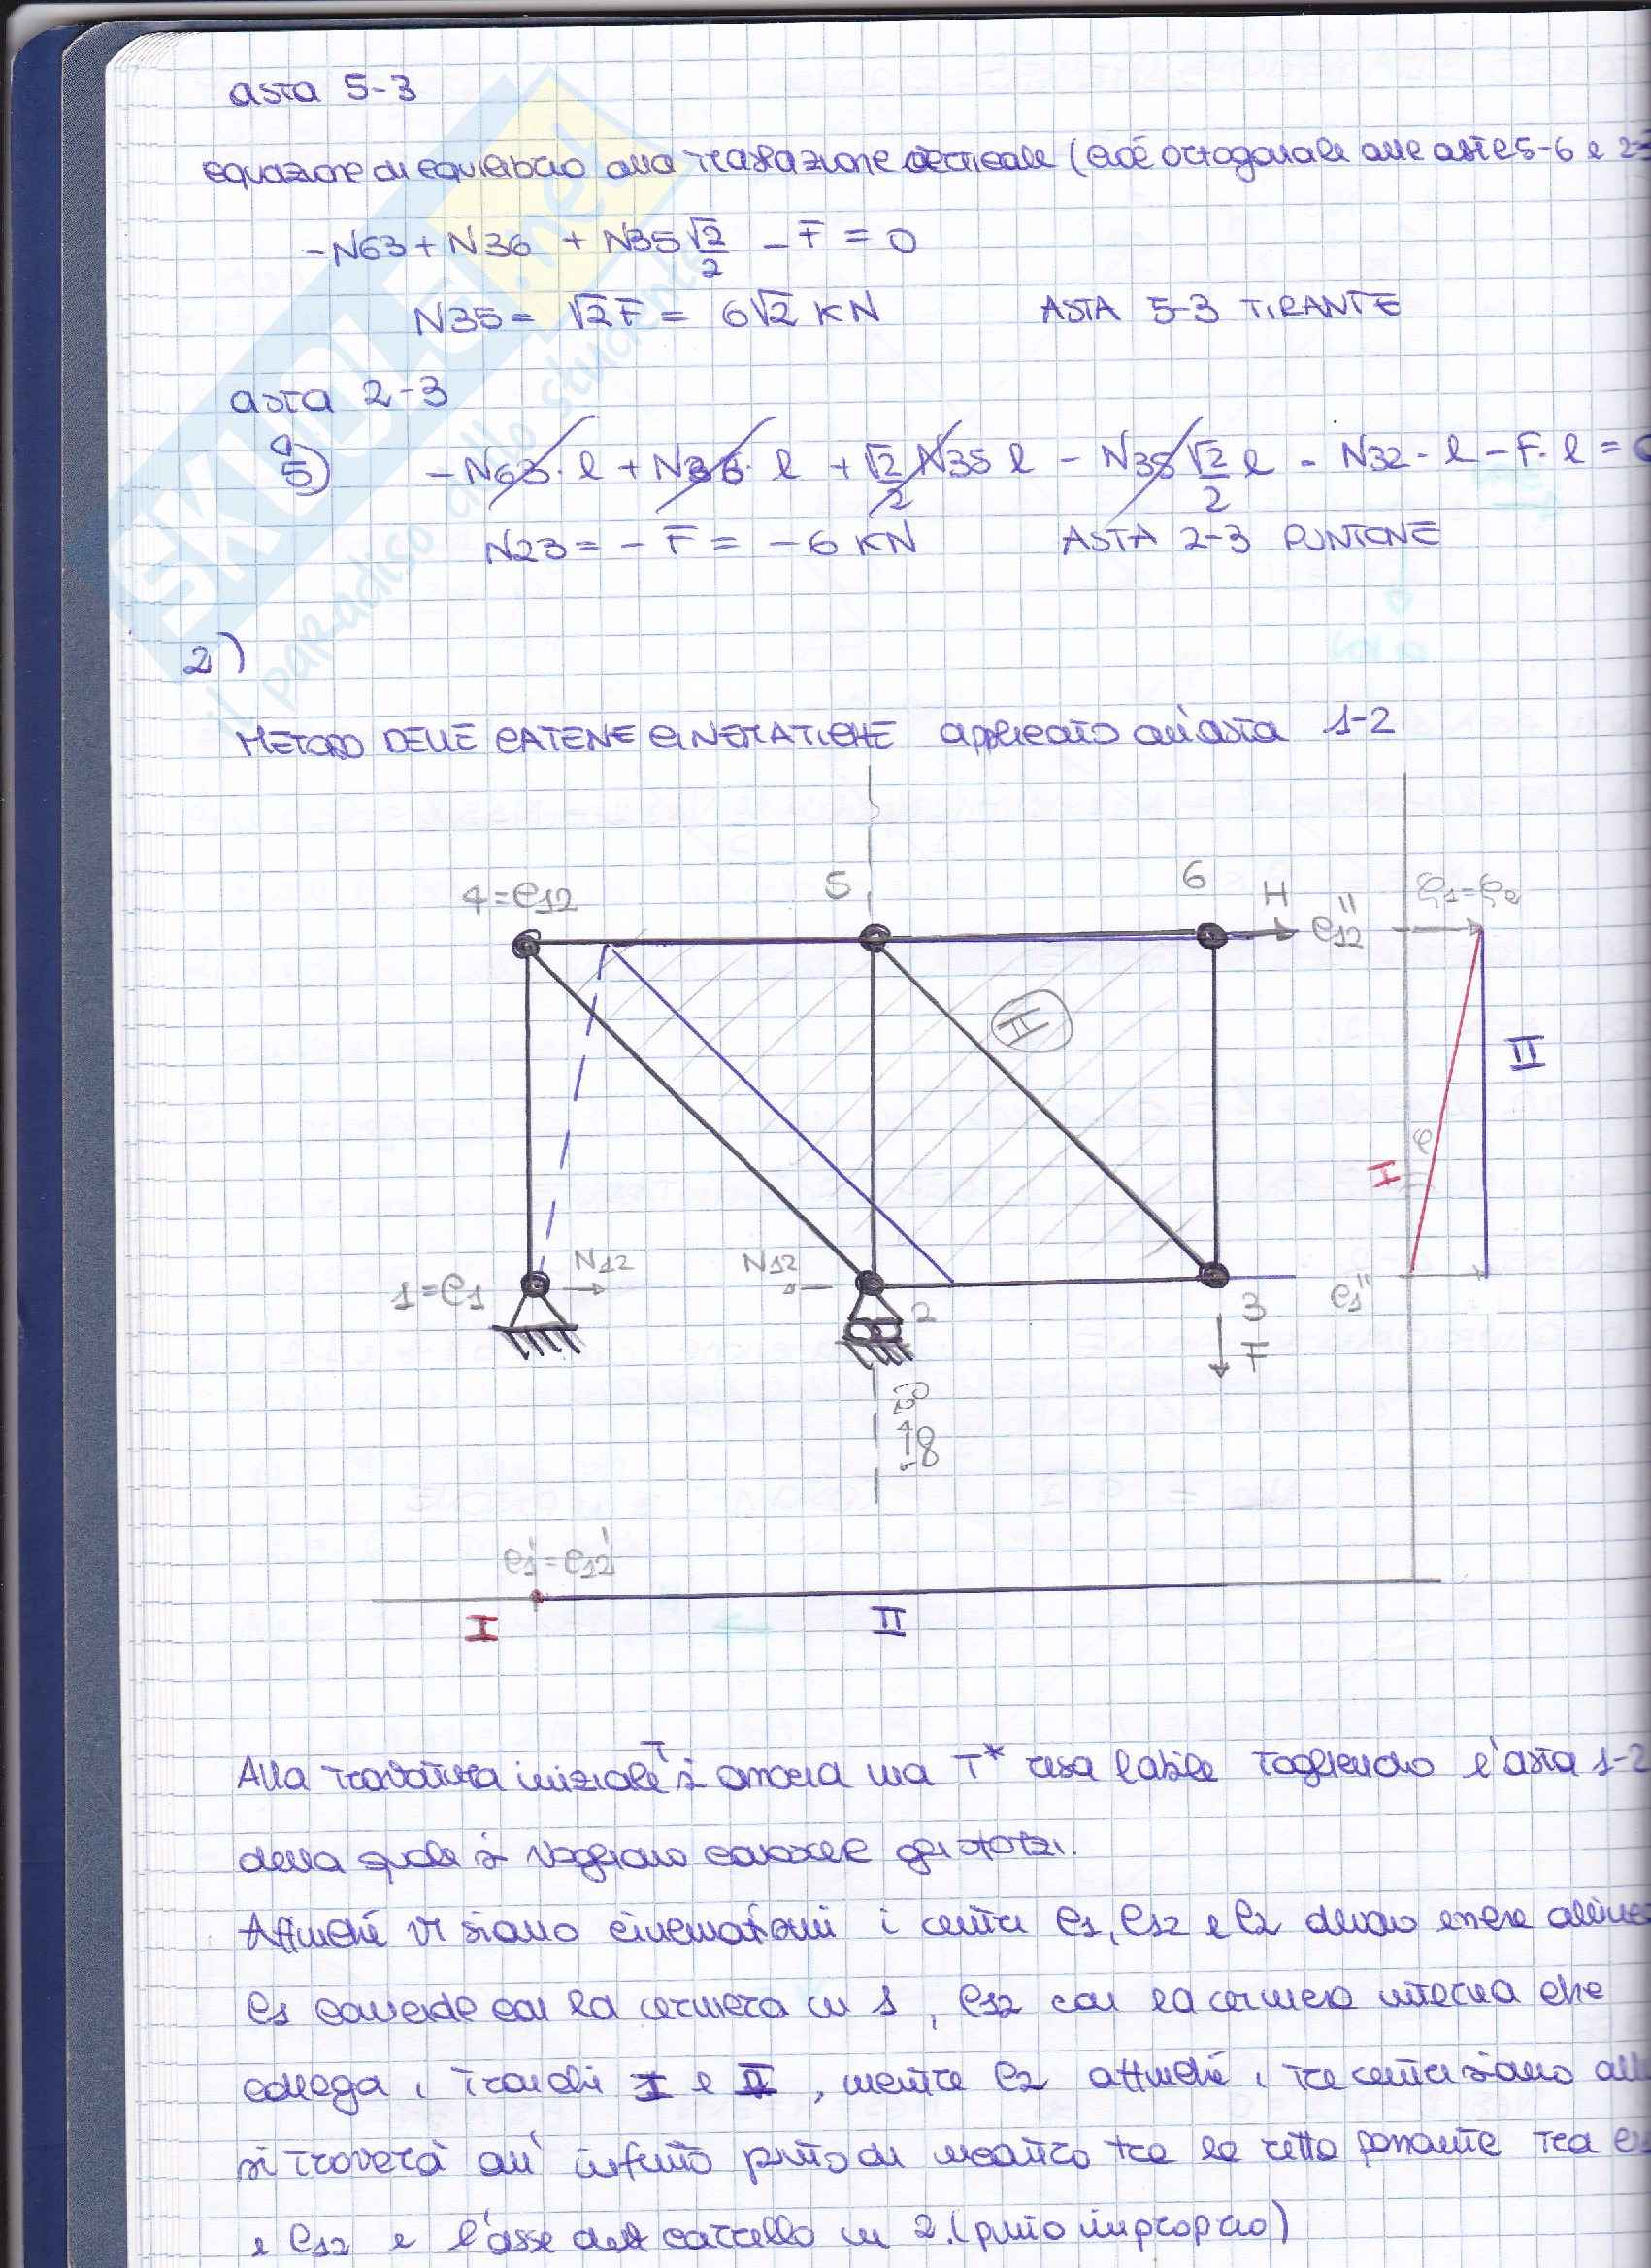 asta 5-3
equazione di equilibrio alla traslazione verticale (cioè ortogonale alle aste 5-6 e 2-
-N63 + N36 + N35 √2/2 - F = 0
N35 = √2 F = 6√2 KN ASTA 5-3 TIRANTE
asta 2-3
5) -N63·l + N36·l + √2/2 N35 l - N35 √2/2 l - N32·l - F·l = 0
N23 = -F = -6 KN ASTA 2-3 PUNTONE
2)
METODO DELLE CATENE CINEMATICHE applicato all'asta 1-2
4=C12 5 6 H C12" φ1=φ2
II
II
I
φ
N12 N12
1=C1 2 3 C1"
F
C1'=C12'
I II
Alla travatura iniziale T si associa una T* resa labile togliendo l'asta 1-2
della quale si vogliono conoscere gli sforzi.
Affinché vi siano cinematismi i centri C1, C12 e C2 devono essere alline
C1 coincide con la cerniera in 1, C12 con la cerniera interna che
collega i tronchi I e II, mentre C2 affinché i tre centri siano all
si troverà all'infinito punto di incontro tra la retta passante tra C1
e C12 e l'asse del carrello in 2. (punto improprio)
SKUOLA.net
il paradiso dello studente